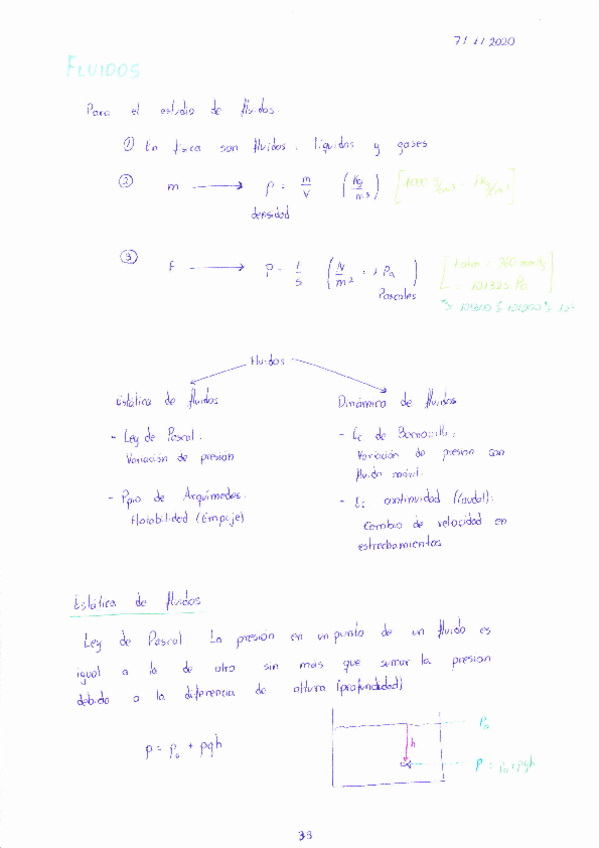 7/1/2020
FLUIDOS
Para el estudio de fluidos:
① En física son fluidos: líquidos y gases
② m → ρ = m/V (Kg/m³)
densidad
③ F → P = f/S (N/m² = 1 Pa)
Pascales
[1 atm = 760 mmHg
= 101325 Pa]
Fluidos
Estática de fluidos
- Ley de Pascal:
Variación de presión
- Ppio de Arquímedes:
Flotabilidad (Empuje)
Dinámica de fluidos
- Ec de Bernouilli:
Variación de presión con
fluido móvil.
- Ec continuidad (Caudal):
Cambio de velocidad en
estrechamientos
Estática de fluidos
Ley de Pascal La presión en un punto de un fluido es
igual a la de otro sin más que sumar la presión
debido a la diferencia de altura (profundidad)
p = p₀ + ρgh
P₀
h
P = p₀+ρgh
33